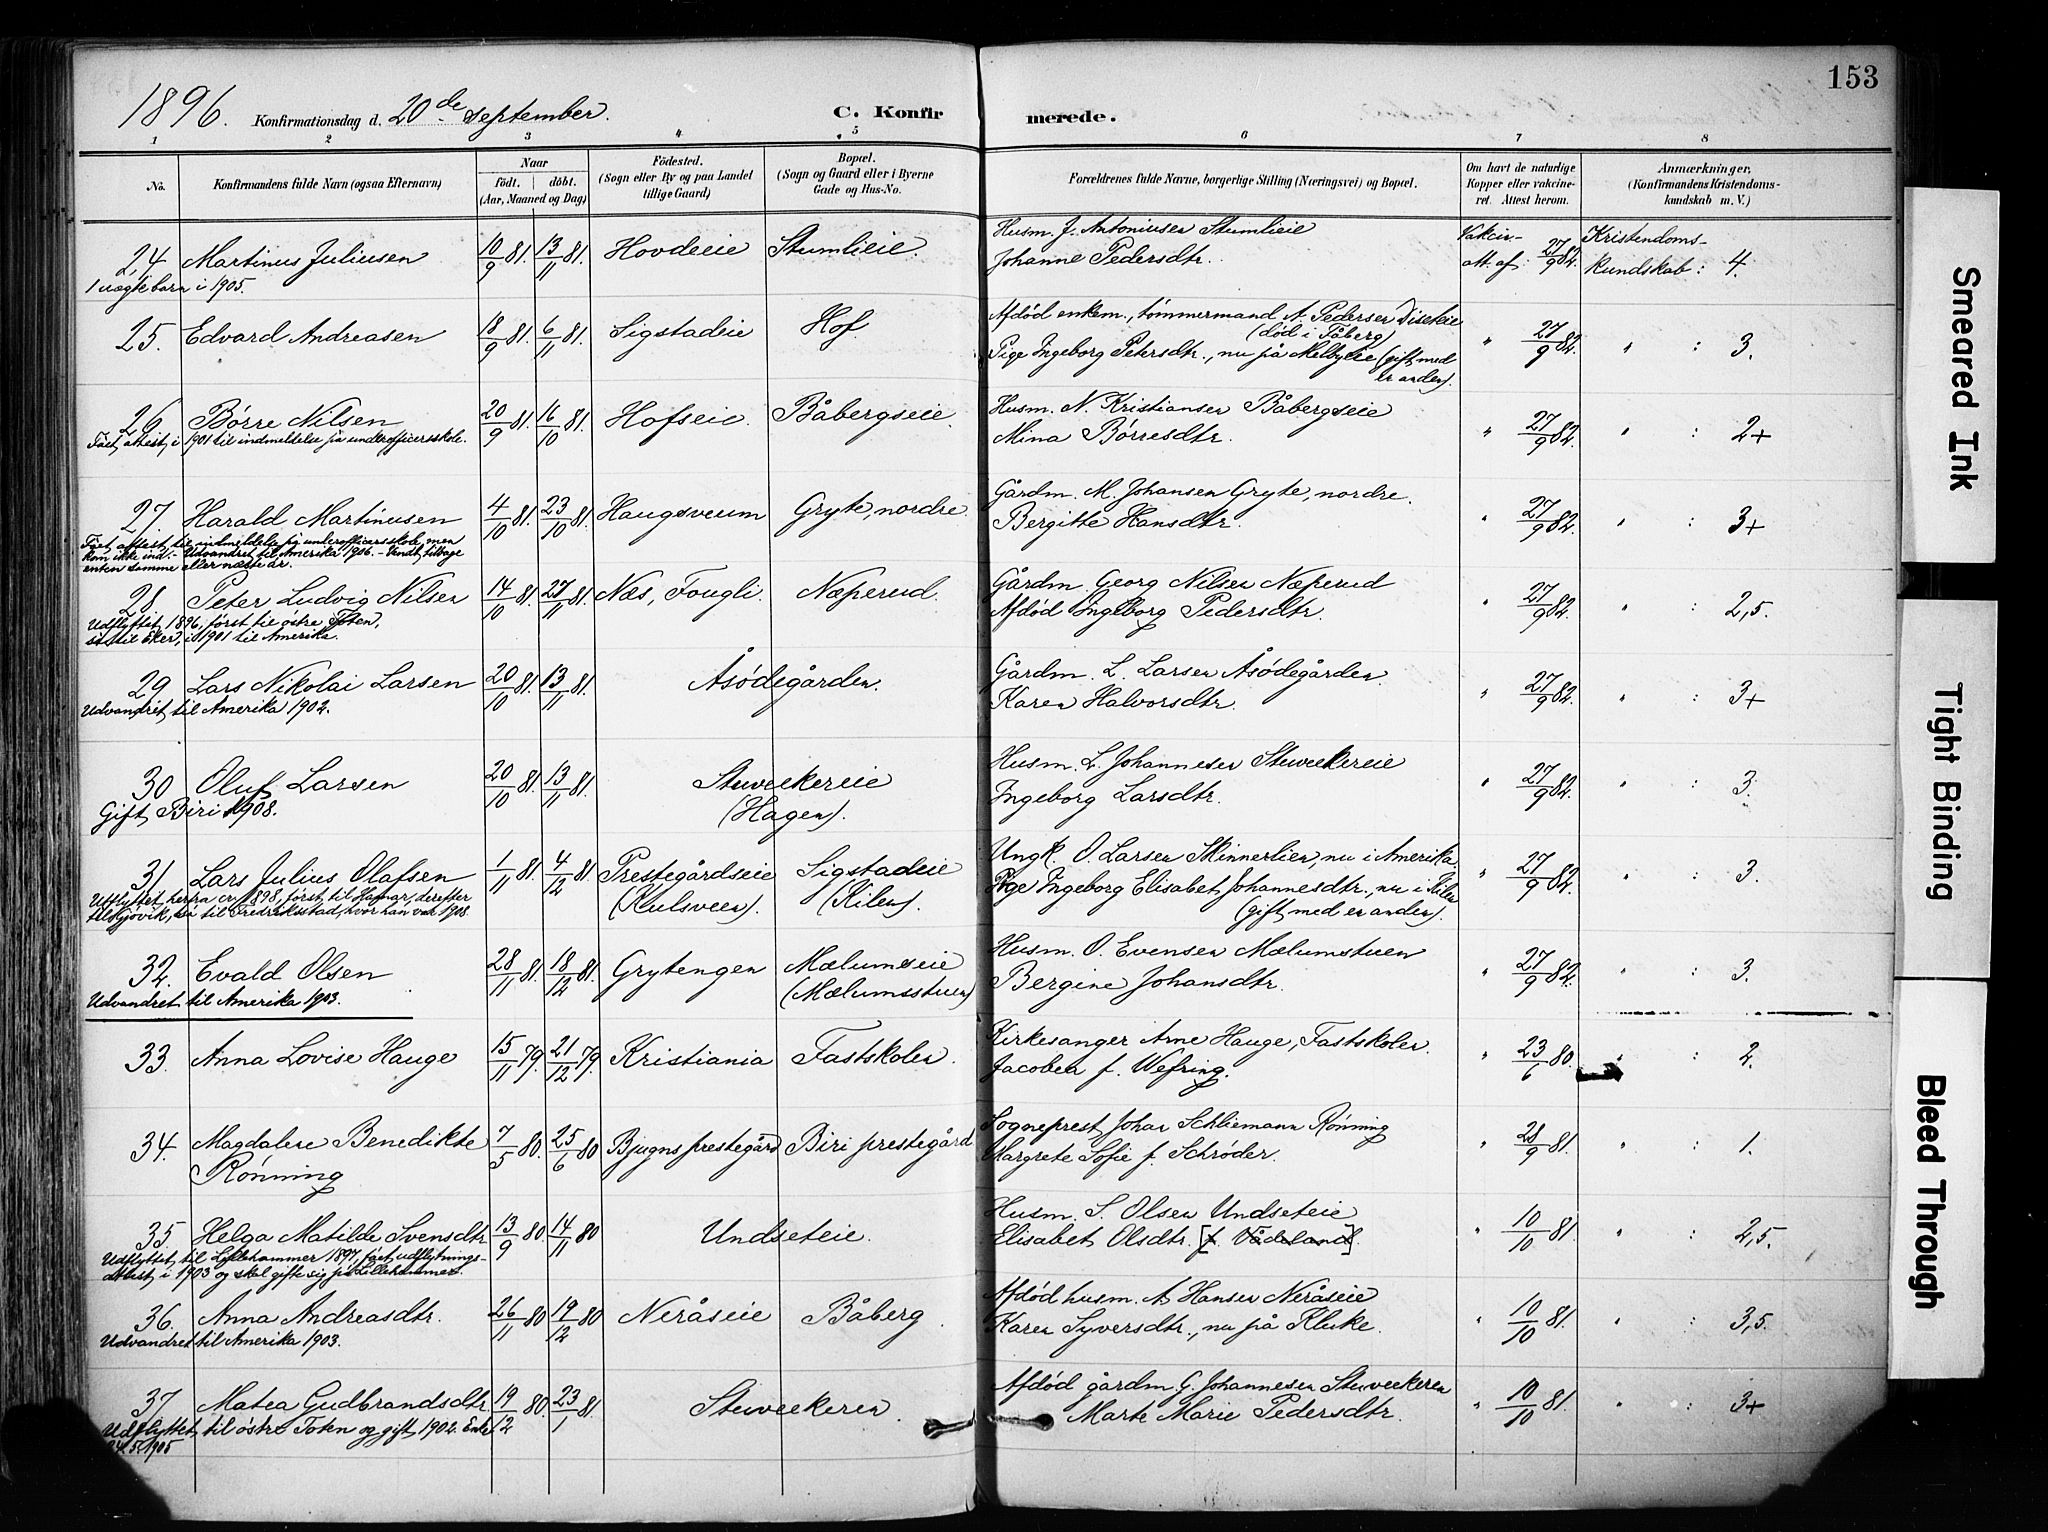 153
1896. Konfirmationsdag d. 20de september. C. Konfirmerede.
1 2 3 4 5 6 7 8
No. Konfirmandens fulde Navn (ogsaa Efternavn) Naar födt. döbt. (Aar, Maaned og Dag) Födested. (Sogn eller By og paa Landet tillige Gaard) Bopæl. (Sogn og Gaard eller i Byerne Gade og Hus-No. Forældrenes fulde Navne, borgerlige Stilling (Næringsvei) og Bopæl. Om havt de naturlige Kopper eller vakcineret. Attest herom. Anmærkninger, (Konfirmandens Kristendomskundskab m. V.)
24 Martinus Juliusen 10/9 81. 13/11 81. Hovdeeie Stumlieie. Husm. J. Antoniusen Stumlieie Vakcin- 27/9 82. Kristendoms-
Johanne Pedersdtr. att. af: kundskab: 4.
1 uægte barn i 1905.
25. Edvard Andreasen 18/9 81. 6/11 81. Sigstadeie Hof. Afdød enkem., tømmermand A. Pedersen Diseteie " 27/9 82. " : 3.
(død i Fåberg)
Pige Ingeborg Petersdtr., nu på Melbyeie (gift med
en anden).
26. Børre Nilsen 20/9 81. 16/10 81. Hofseie. Båbergseie. Husm. N. Kristiansen Båbergseie " 27/9 82. " : 2+
Mina Børresdtr.
Fået attest i 1901 til indmeldelse på underofficersskole.
27. Harald Martinusen 4/10 81. 23/10 81. Haugsveum Gryte, nordre. Gårdm. M. Johansen Gryte, nordre. " 27/9 82. " : 3+
Bergitte Hansdtr.
Fået attest til indmeldelse på underofficersskole, men
kom ikke ind. - Udvandret til Amerika 1906. - Vendt tilbage
enten samme eller næste år.
28 Peter Ludvig Nilsen 14/10 81. 27/11 81. Næs, Fougli. Næperud. Gårdm. Georg Nilsen Næperud " 27/9 82. " : 2,5.
Afdød Ingeborg Pedersdtr.
Udflyttet 1896, først til østre Toten,
så til Eker, i 1901 til Amerika.
29 Lars Nikolai Larsen 20/10 81. 13/11 81. Åsødegården. Gårdm. L. Larsen Åsødegården. " 27/9 82. " : 3+
Karen Halvorsdtr.
Udvandret til Amerika 1902.
30 Oluf Larsen 20/10 81. 13/11 81. Stuveekereie Husm. L. Johannesen Stuveekereie " 27/9 82. " : 3.
(Hagen). Ingeborg Larsdtr.
Gift, Biri 1908.
31 Lars Julius Olafsen 1/11 81. 4/12 81 Prestegårdseie Sigstadeie Ungk. O. Larsen Skinnerlien, nu i Amerika. " 27/9 82. " : 3.
(Kulsveen). (Kilen). Pige Ingeborg Elisabet Johannesdtr., nu i Kilen
(gift med en anden).
Utflyttet herfra ca. 1898, først til Hamar, derefter
til Gjøvik, så til Fredriksstad, hvor han var 1908.
32. Evald Olsen 28/11 81. 18/12 81. Grytengen Mælumseie Husm. O. Evensen Mælumstuen " 27/9 82. " : 3.
(Mælumsstuen) Bergine Johansdtr.
Udvandret til Amerika 1903.
33. Anna Lovise Hauge 15/11 79. 21/12 79. Kristiania Fastskolen. Kirkesanger Arne Hauge, Fastskolen. " 23/6 80. " : 2.
Jacobea f. Wefring.
34. Magdalene Benedikte 7/5 80. 25/6 80 Bjugns prestegård Biri prestegård Sogneprest Johan Schliemann Rønning " 28/9 81. " : 1.
Rønning Margrete Sofie f. Schrøder.
35 Helga Matilde Svensdtr. 13/9 80. 14/11 80 Undseteie. Husm. S. Olsen Undseteie " 10/10 81. " : 2,5.
Elisabet Olsdtr. [f. Vådeland].
Udflyttet til Lillehammer 1897, fået udflytnings-
attest i 1903 og skal gifte sig på Lillehammer.
36. Anna Andreasdtr. 26/11 80 19/12 80 Neråseie Båberg. Afdød husm. A. Hansen Neråseie " 10/10 81. " : 3,5.
Karen Syversdtr., nu på Kluke.
Udvandret til Amerika 1903.
37 Matea Gudbrandsdtr. 19/12 80. 23/1 81. Stuveekeren. Afdød gårdm. G. Johannesen Stuveekeren " 10/10 81. " : 3+
Marte Marie Pedersdtr.
Udflyttet til østre Toten og gift 1902. Enke
24.5.1905
Smeared Ink
Tight Binding
Bleed Through